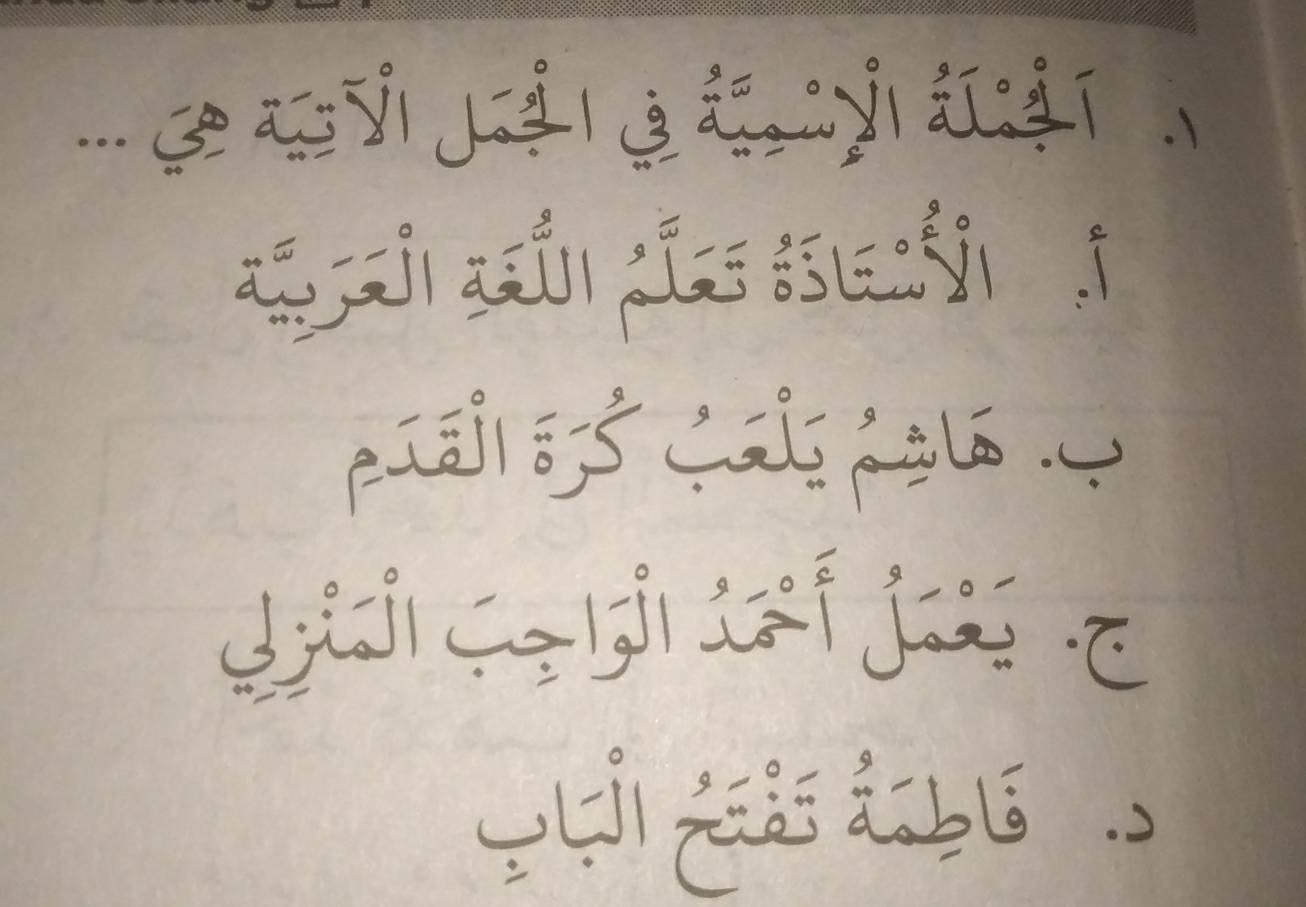 ١. اَلْجُمْلَةُ الْإِسْمِيَّةُ فِي الْجُمَل الْآتِيَة هِيَ ...
أ. الْأُسْتَاذَةُ تَعَلَّمُ اللُّغَةِ الْعَرَبِيَّة
ب. هَاشِمُ يَلْعَبُ كُرَةَ الْقَدَمِ
ج. يَعْمَلُ أَحْمَدُ الْوَاجِبَ الْمَنْزِلِي
د. فَاطِمَةُ تَفْتَحُ الْبَابِ